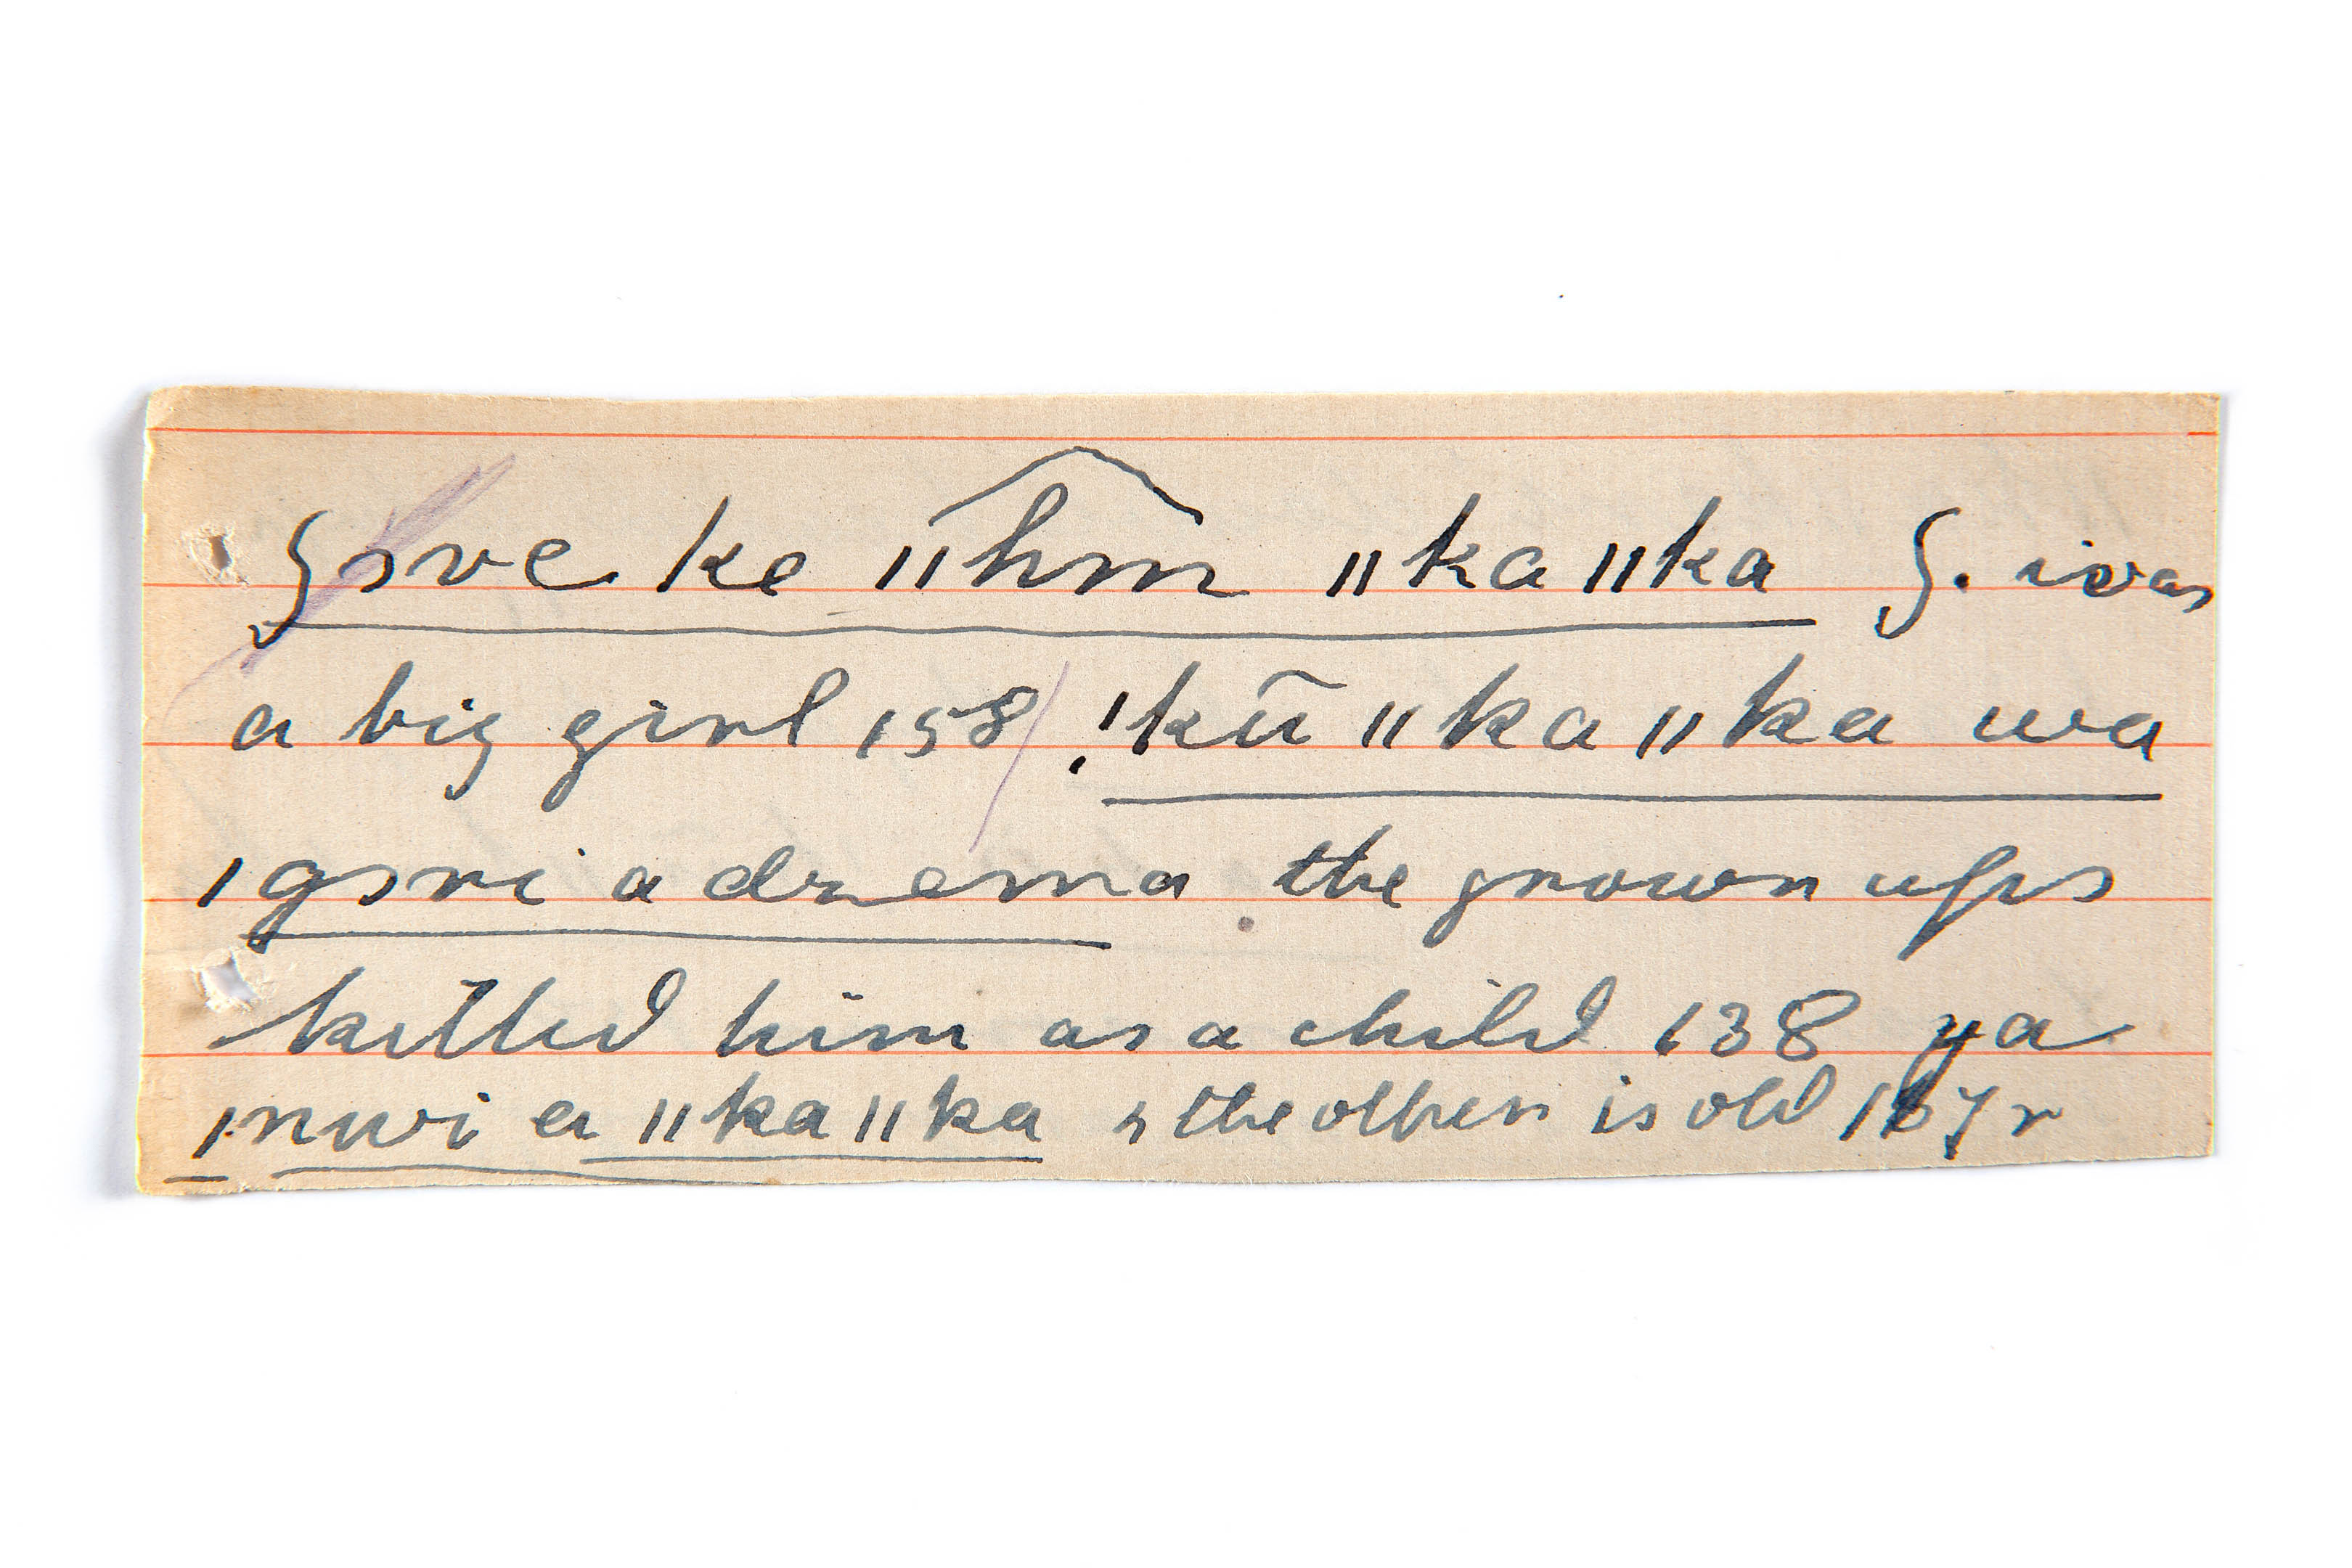 Gɔve ke ǁhm̂ ǁkaǁka G. was
a big girl 158 !kũ ǁkaǁka wa
ǀgɔri a dzema the grown ups
killed him as a child 138 ya
ǀnwi a ǁkaǁka , the other is old 167r